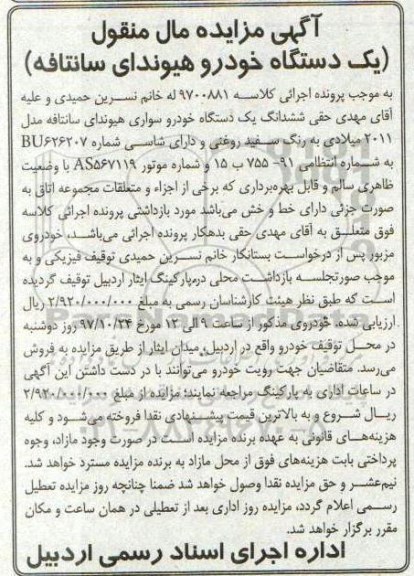 آگهی مزایده مال منقول
(یک دستگاه خودرو هیوندای سانتافه)
به موجب پرونده اجرائی کلاسه ۹۷۰۰۸۸۱ له خانم نسرین حمیدی و علیه
آقای مهدی حقی ششدانگ یک دستگاه خودرو سواری هیوندای سانتافه مدل
۲۰۱۱ میلادی به رنگ سفید روغنی و دارای شاسی شماره BU۶۲۶۲۰۷
به شماره انتظامی ۹۱- ۷۵۵ ب ۱۵ و شماره موتور AS۵۶۷۱۱۹ با وضعیت
ظاهری سالم و قابل بهره‌برداری که برخی از اجزاء و متعلقات مجموعه اتاق به
صورت جزئی دارای خط و خش می‌باشد مورد بازداشتی پرونده اجرائی کلاسه
فوق متعلق به آقای مهدی حقی بدهکار پرونده اجرائی می‌باشد، خودروی
مزبور پس از درخواست بستانکار خانم نسرین حمیدی توقیف فیزیکی و به
موجب صورتجلسه بازداشت محلی درپارکینگ ایثار اردبیل توقیف گردیده
است که طبق نظر هیئت کارشناسان رسمی به مبلغ ۲/۹۲۰/۰۰۰/۰۰۰ ریال
ارزیابی شده، خودروی مذکور از ساعت ۹ الی ۱۲ مورخ ۹۷/۱۰/۲۴ روز دوشنبه
در محل توقیف خودرو واقع در اردبیل، میدان ایثار از طریق مزایده به فروش
می‌رسد. متقاضیان جهت رویت خودرو می‌توانند با در دست داشتن این آگهی
در ساعات اداری به پارکینگ مراجعه نمایند؛ مزایده از مبلغ ۲/۹۲۰/۰۰۰/۰۰۰
ریال شروع و به بالاترین قیمت پیشنهادی نقدا فروخته می‌شود و کلیه
هزینه‌های قانونی به عهده برنده مزایده است در صورت وجود مازاد، وجوه
پرداختی بابت هزینه‌های فوق از محل مازاد به برنده مزایده مسترد خواهد شد.
نیم‌عشر و حق مزایده نقدا وصول خواهد شد ضمنا چنانچه روز مزایده تعطیل
رسمی اعلام گردد، مزایده روز اداری بعد از تعطیلی در همان ساعت و مکان
مقرر برگزار خواهد شد.
اداره اجرای اسناد رسمی اردبیل